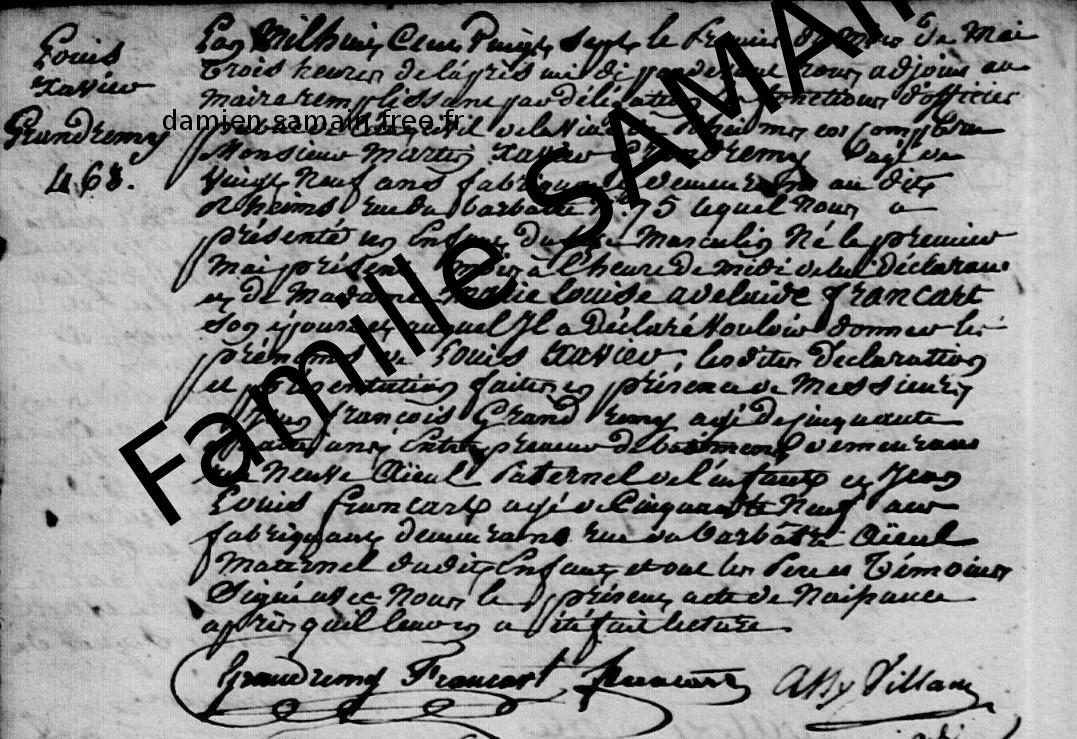 Louis
Xavier
Grandremy
468.
L'an Mil huit Cent Vingt Sept le Premier du Mois de Mai
trois heures de l'après midi pardevant nous adjoint au
maire remplissant par délégation les fonctions d'officier
damien.samain.free.fr
de la Ville de Rheims est comparu
Monsieur Martin Xavier Grandremy agé de
Vingt Neuf ans fabriquant demeurant au dit
Rheims rue du barbatre 75 lequel nous a
présenté un Enfant du sexe Masculin Né le premier
Mai présent mois à l'heure de midi de lui déclarant
et de Madame Marie Louise adelaide francart
son épouse et auquel Il a déclaré Vouloir donner les
prénoms de Louis Xavier, lesdites déclaration
et présentation faites en présence de Messieurs
françois Grand remy agé de cinquante
ans Entrepreneur de batiment demeurant
rue Neuve Aïeul Paternel de l'enfant et Jean
Louis francart agé de Cinquante Neuf ans
fabriquant demeurant rue du barbâtre Aïeul
Maternel dudit Enfant et ont les Père et Témoins
Signé avec Nous le présent acte de Naissance
après qu'il leur en a été fait lecture
Grandremy Francart francart
Famille SAMAIN